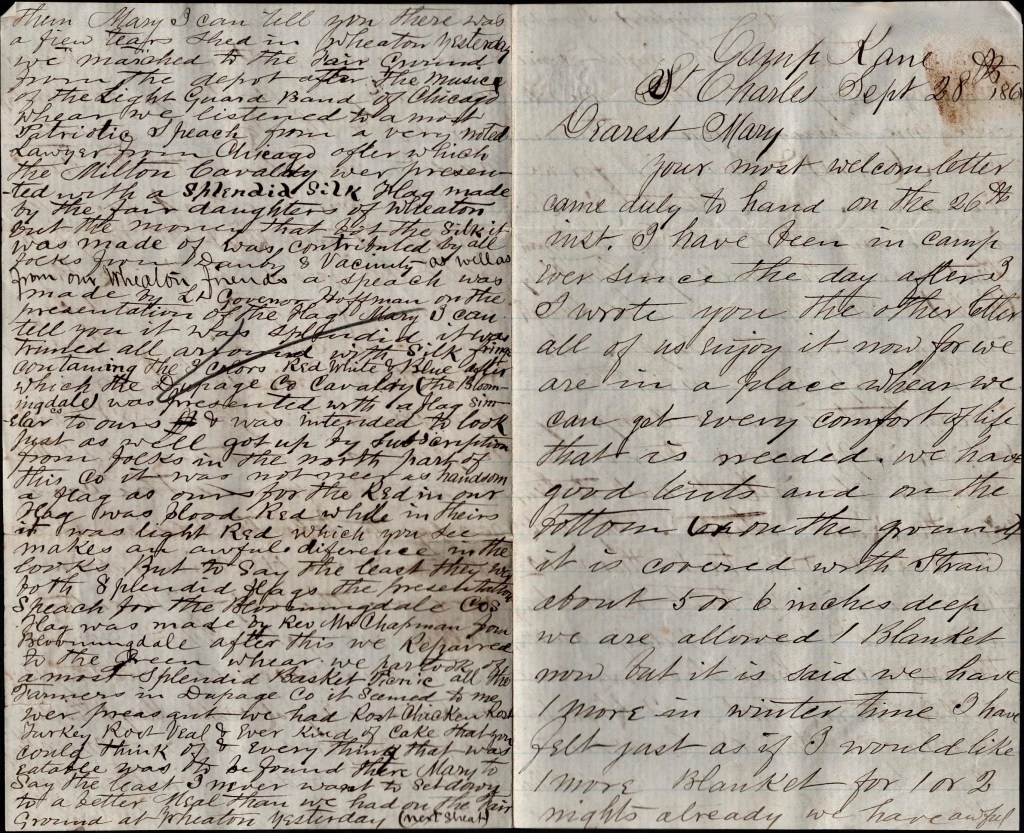 them Mary I can tell you there was
a fiew tears shed in Wheaton yesterday
we marched to the Fair Ground
from the depot after the musice
of the Light Guard Band of Chicago
whear we listened to a most
Patriotic Speach from a very noted
Lawyer from Chicago after which
the Milton Cavalry wer presen-
-ted with a Splendid Silk Flag made
by the fair daughters of Wheaton
but the money that got the Silk it
was made of was contributed by all
folks from Danby & Vacinity as well as
from our Wheaton friends a speach was
made by L. Govenor Hoffman on the
presentation of the Flag Mary I can
tell you it was splendid it was
trimed all around with Silk fringe
contaning the 3 Colors Red White & Blue after
which the Dupage Co Cavalry (the Bloom-
ingdale Co) was presented with a flag sim-
elar to ours & was intended to look
just as well got up by subscription
from folks in the north part of
this Co it was not near as handsom
a flag as ours for the Red in our
Flag was blood Red while in theirs
it was light Red which you see
makes an awful diference in the
looks But to Say the least they wer
both Splendid Flags the presentation
Speach for the Bloomingdale Cos
Flag was made by Rev Mr Chapman from
Bloomingdale after this we Repaired
to the Green whear we partook of the
a most Splendid Basket Picnic all the
Farmers in Dupage Co it seemed to me
wer preasant we had Rost Chicken Rost
Turkey Rost Veal & Ever Kind of Cake that you
could think of & Every thing that was
eatable was to be found there Mary to
Say the least I never want to Set down
to a better Meal than we had on the Fair
Ground at Wheaton yesterday (next sheat)
Camp Kane
St Charles Sept 28th 186
Dearest Mary
Your most welcom letter
came duly to hand on the 26th
inst. I have been in camp
Ever since the day after
I wrote you the other letter
all of us enjoy it now for we
are in a place whear we
can get every comfort of life
that is needed. we have
good tents and on the
bottom on the ground
it is covered with Straw
about 5 or 6 inches deep
we are allowed 1 Blanket
now but it is said we have
1 more in winter time I have
felt just as if I would like
1 more Blanket for 1 or 2
nights already we have awful